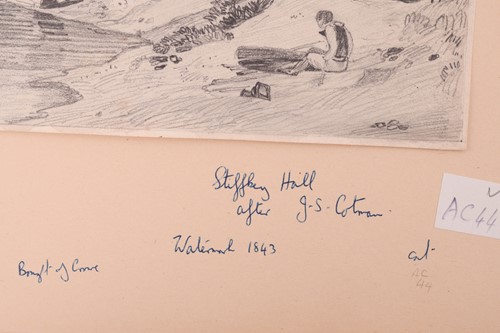 Stiffkey Hall
after J-S-Cotman.
AC44
Watermark 1843
cat
Bought of
AC
44